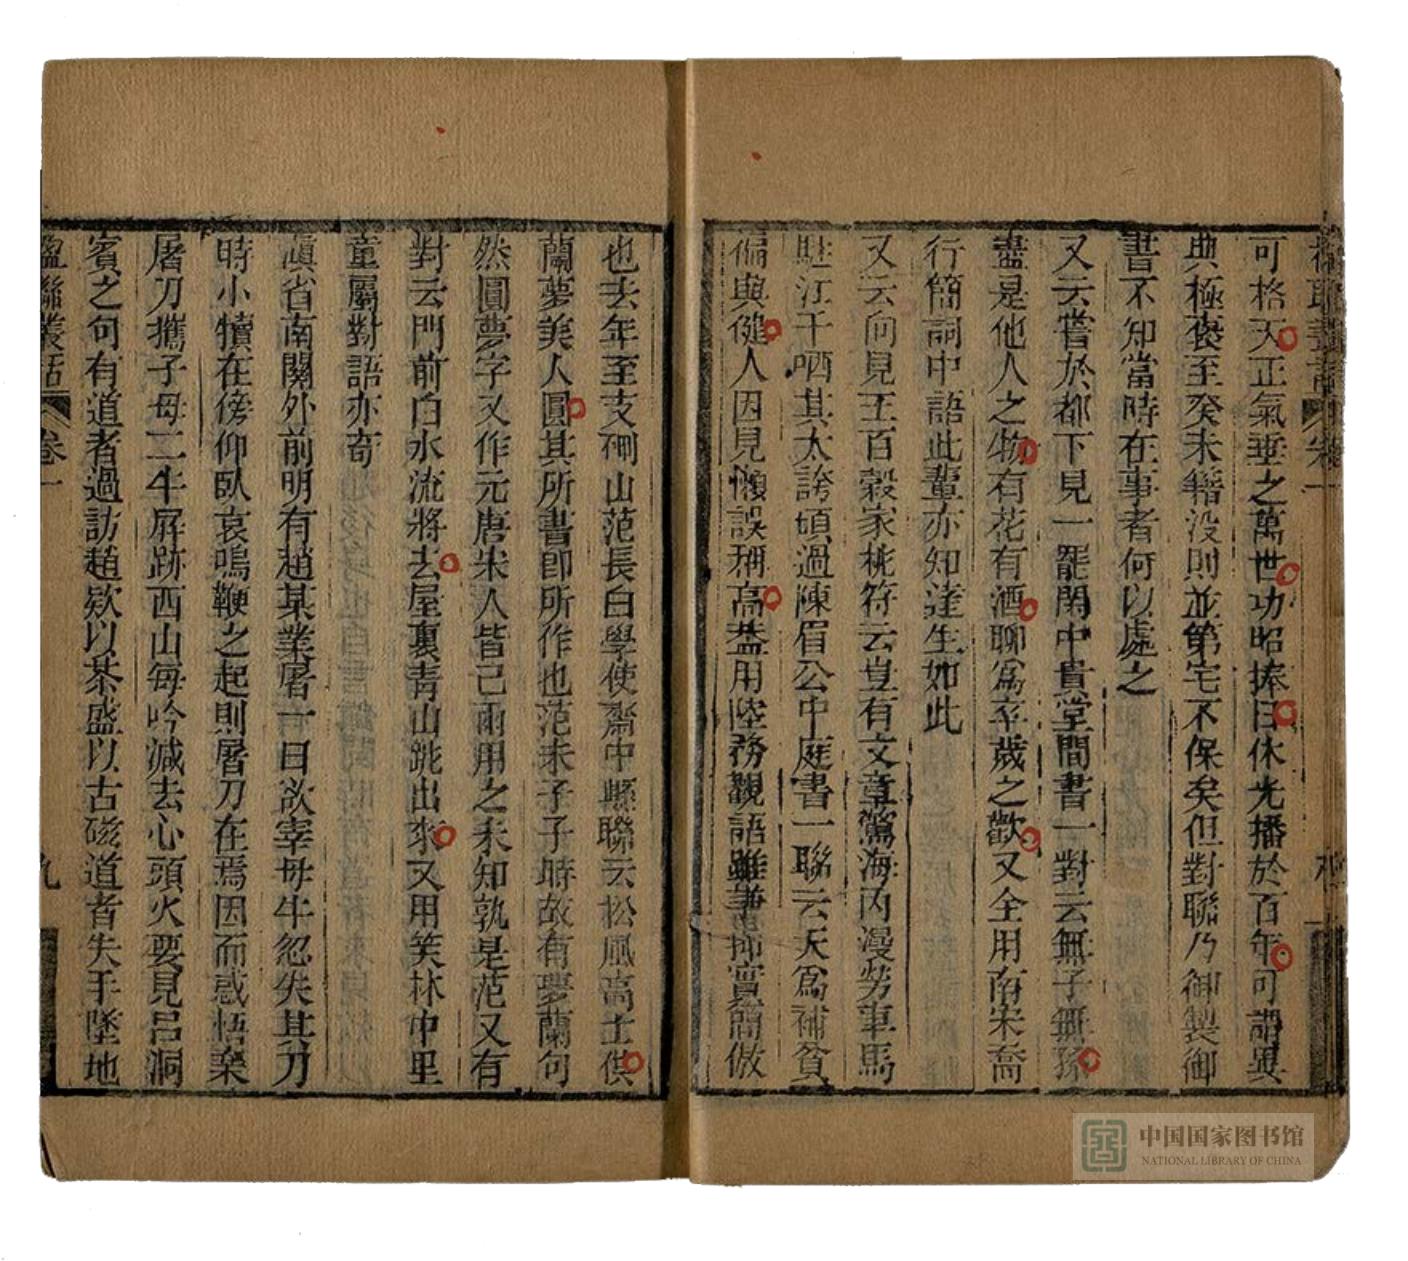 可格天正氣垂之萬世功昭捧日休光播於百年可謂異
典極褒至癸未籍沒則並第宅不保矣但對聯乃御製御
書不知當時在事者何以處之
又云嘗於都下見一罷閑中貴堂間書一對云無子無孫
盡是他人之物有花有酒聊爲卒歲之歡又全用南宋喬
行簡詞中語此輩亦知達生如此
又云向見王百穀家桃符云豈有文章驚海內漫勞車馬
駐江干哂其太誇頃過陳眉公中庭書一聯云天爲補貧
偏與健人因見懶誤稱高葢用陸務觀語雖謙抑實簡傲
也去年至支硎山范長白學使齋中縣聯云松風高士供
蘭夢美人圓其所書卽所作也范未子子時故有夢蘭句
然圓夢字又作元唐宋人皆已兩用之未知孰是范又有
對云門前白水流將去屋裏青山跳出來又用笑林中里
童屬對語亦奇
滇省南關外前明有趙某業屠一日欲宰母牛忽失其刀
時小犢在傍仰臥哀鳴鞭之起則屠刀在焉因而感悟棄
屠刀攜子母二牛屏跡西山每吟減去心頭火要見呂洞
賓之句有道者過訪趙欵以茶盛以古磁道者失手墜地
楹聯叢話 卷一 九
中国国家图书馆
NATIONAL LIBRARY OF CHINA